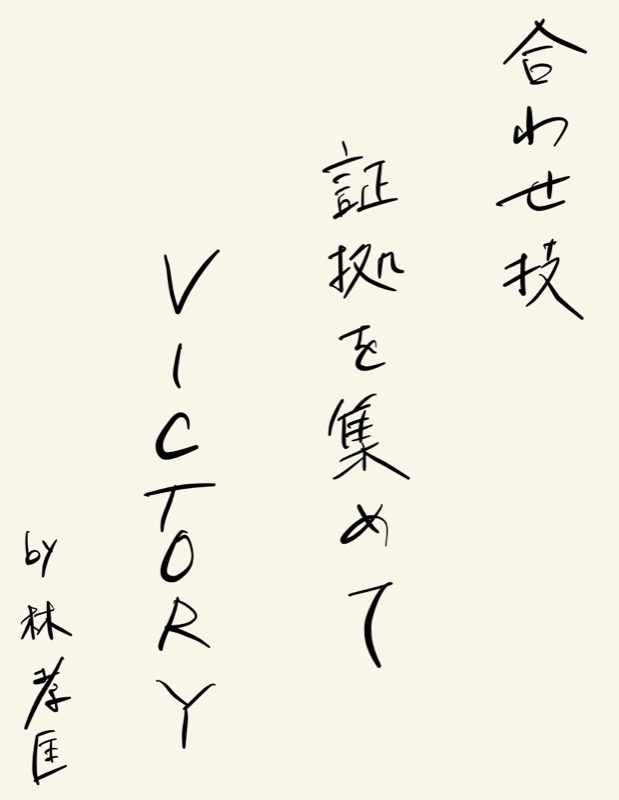 合わせ技
証拠を集めて
VICTORY
by 林孝匡